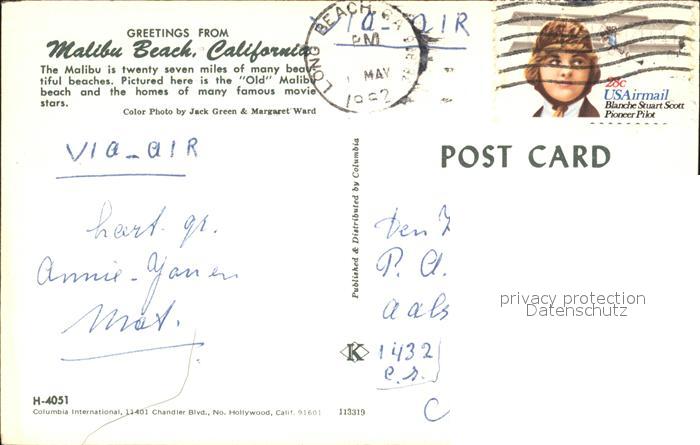 GREETINGS FROM
Malibu Beach, California
The Malibu is twenty seven miles of many beau
tiful beaches. Pictured here is the "Old" Malibu
beach and the homes of many famous movie
stars.
Color Photo by Jack Green & Margaret Ward
VIA-AIR
LONG BEACH
PM
MAY
1982
28c
USAirmail
Blanche Stuart Scott
Pioneer Pilot
VIA-AIR
hart. gr.
Annie-
Mat.
Published & Distributed by Columbia
POST CARD
Den
P. A.
Aals
1432
e.s.
C
privacy protection
Datenschutz
K
H-4051
Columbia International, 11401 Chandler Blvd., No. Hollywood, Calif. 91601 113319